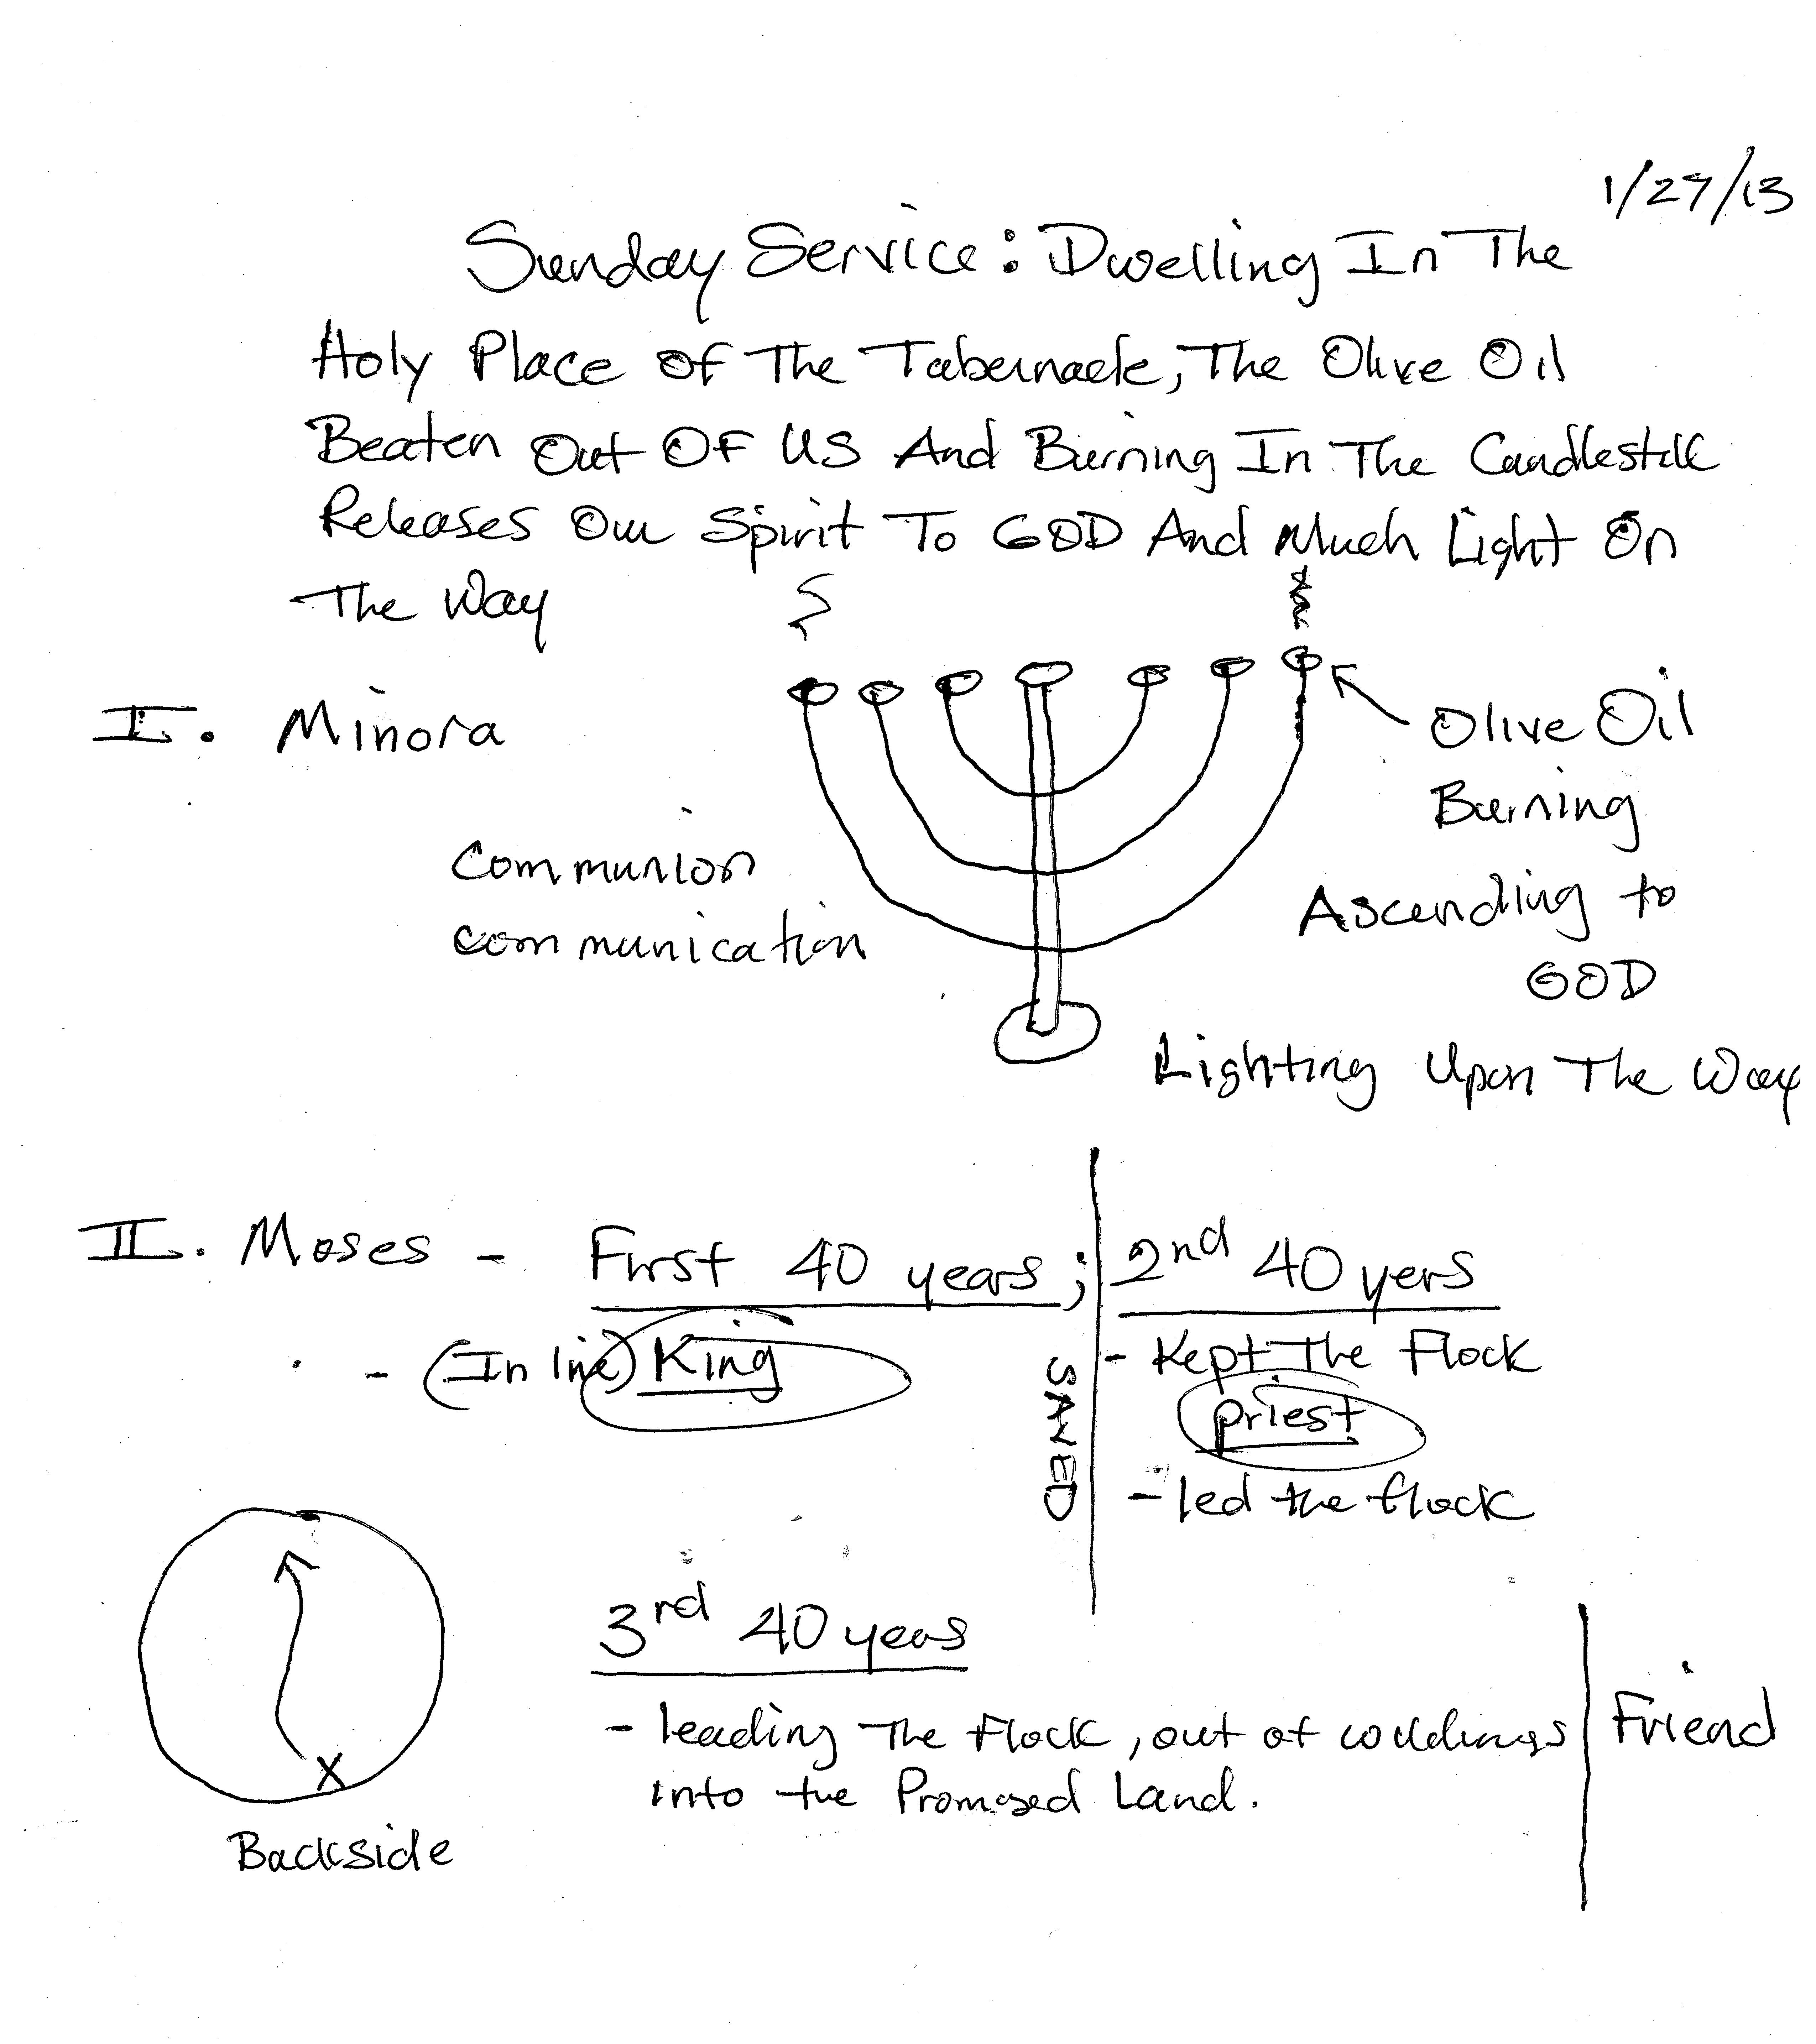 1/27/13
Sunday Service: Dwelling In The
Holy Place Of The Tabernacle, The Olive Oil
Beaten Out Of US And Burning In The Candlestick
Releases Our Spirit To GOD And Much Light On
The Way
I. Minora
Olive Oil
Burning
Communion
communication
Ascending to
GOD
Lighting Upon The Way
II. Moses - First 40 years; 2nd 40 yers
- (In line) King
- Kept The Flock
priest
SAVED
- led the flock
3rd 40 years
- leading The Flock, out of
into the Promised Land.
Friend
Backside
X